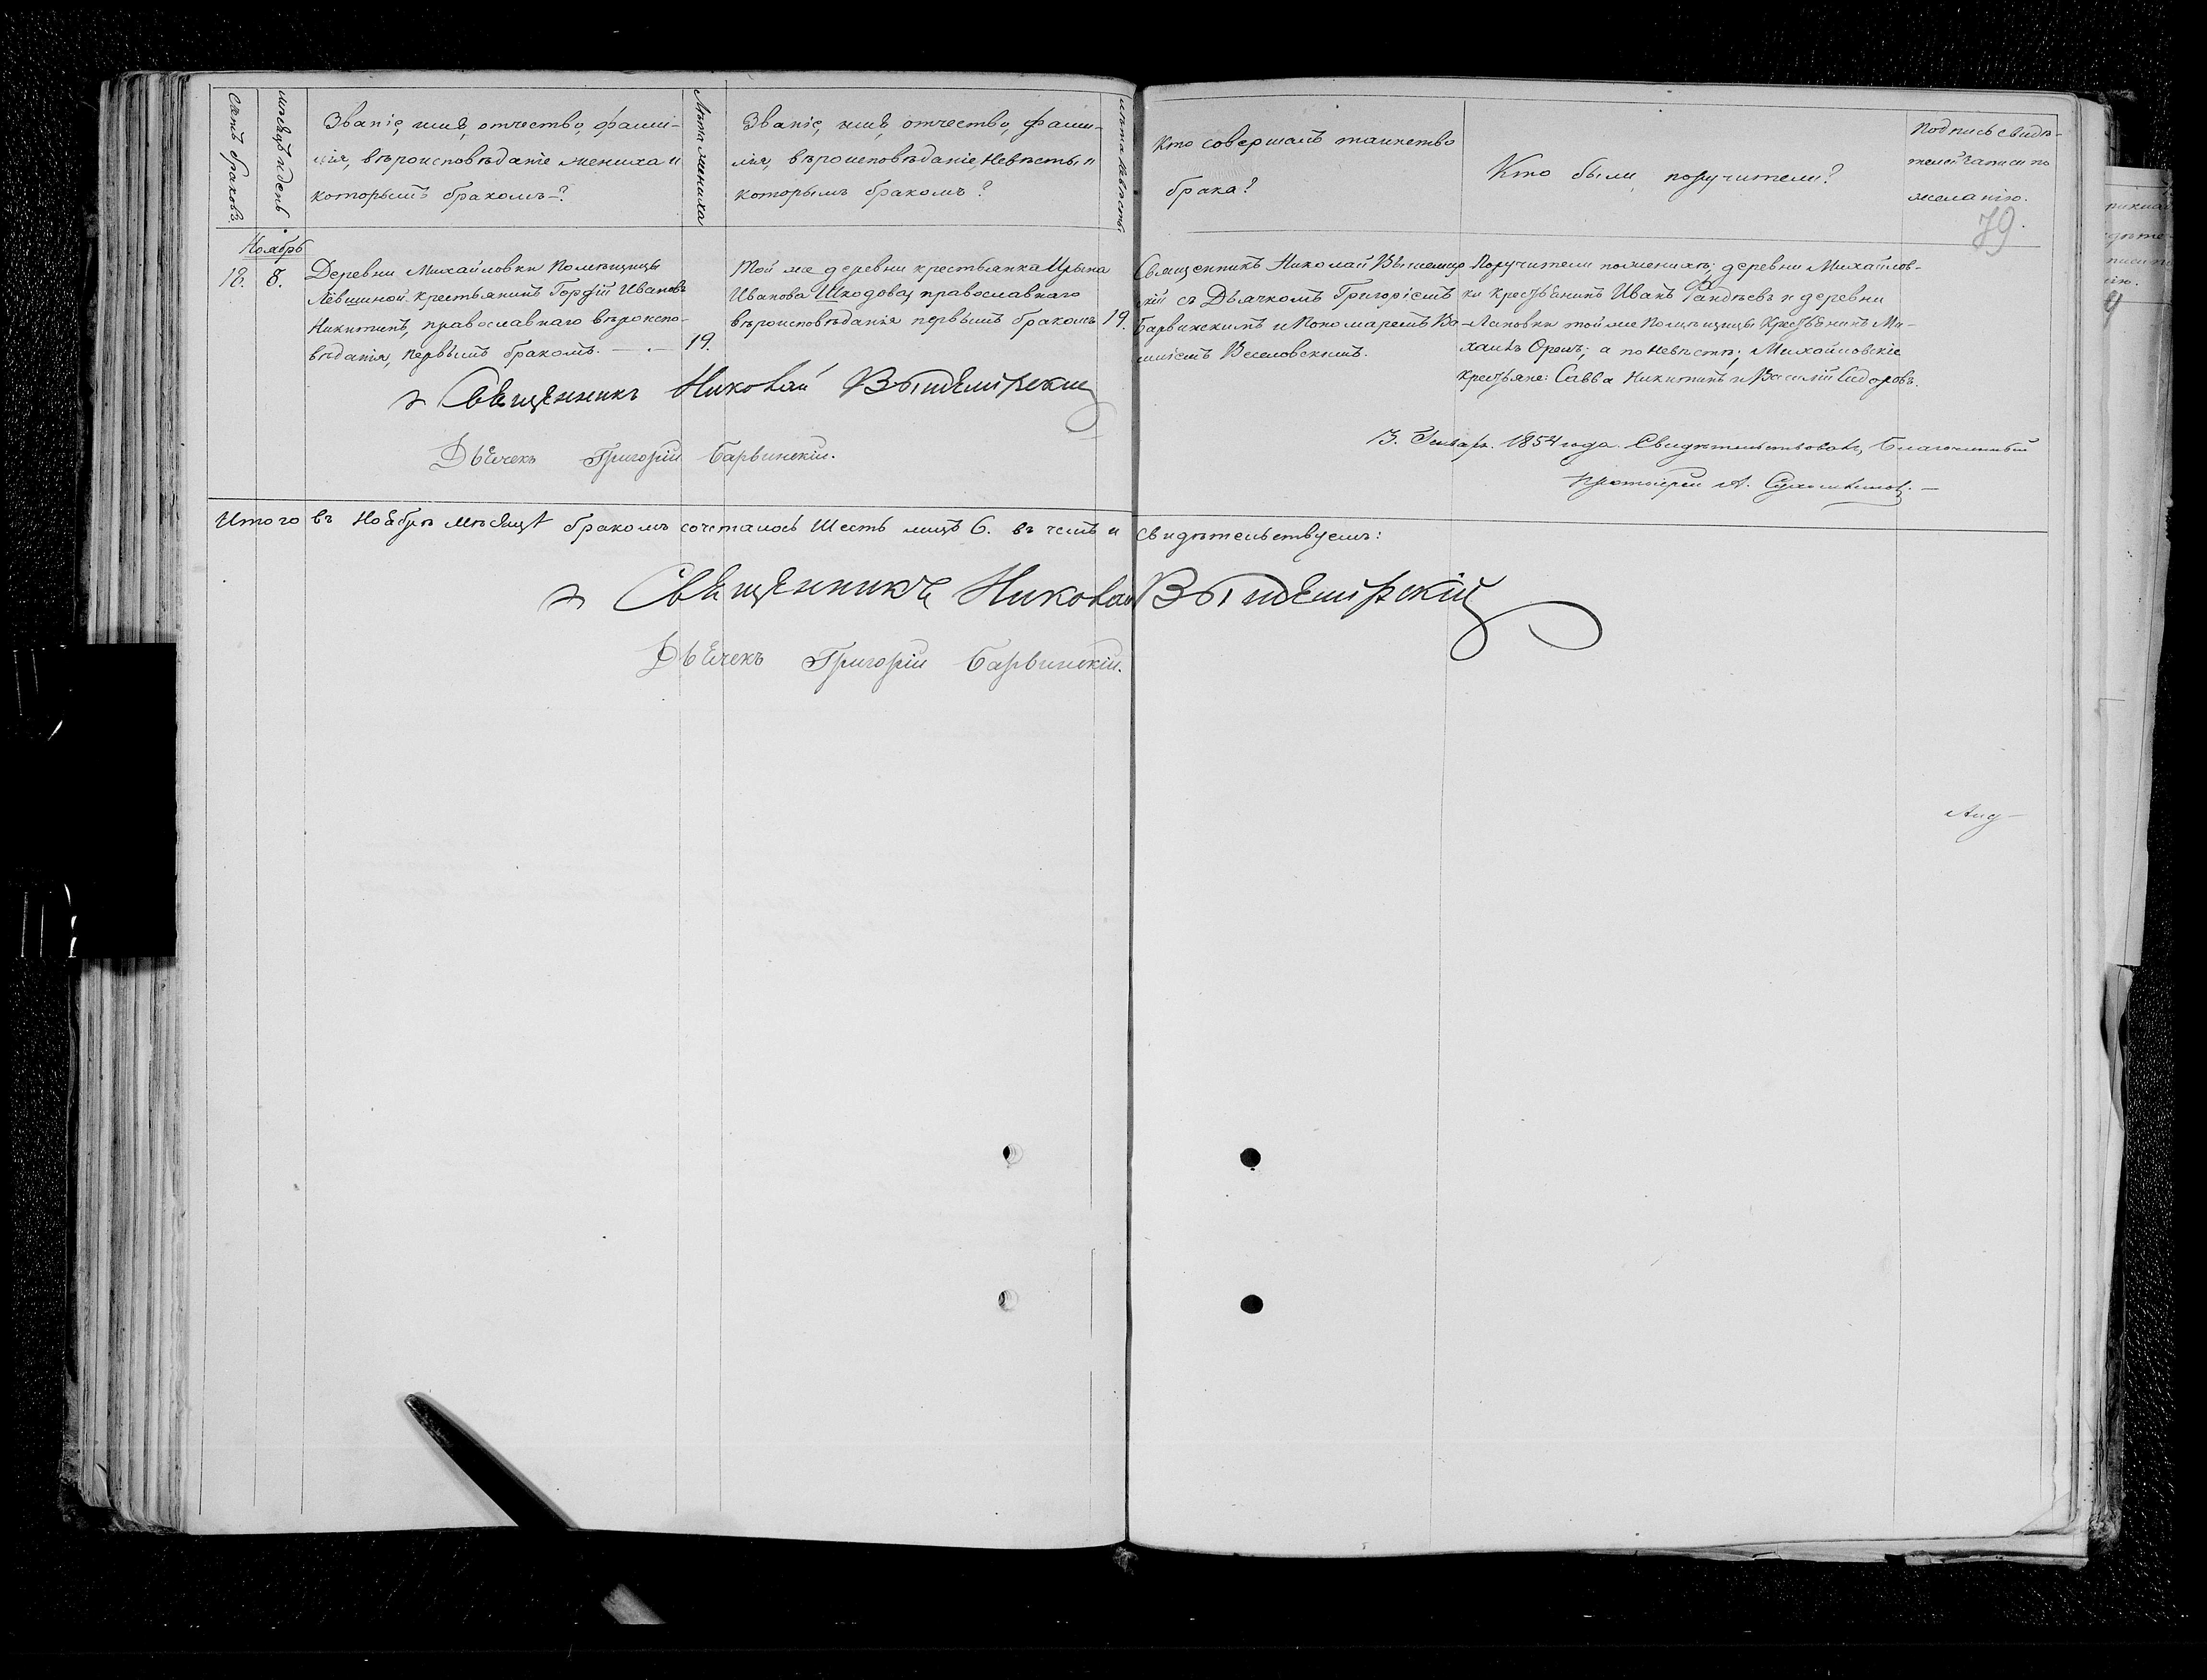 Счетъ браковъ.
мѣсяцъ и день
Званіе, имя, отчество, фами-
лія, вѣроисповѣданіе жениха и
которымъ бракомъ?
Лѣта жениха
Званіе, имя, отчество, фами-
лія, вѣроисповѣданіе, невѣсты и
которымъ бракомъ?
лѣта невѣсты
Кто совершалъ таинство
брака?
Кто были поручители?
Подпись свидѣ-
телей записи по
желанію.
79.
Ноябрь
18. 8.
Деревни Михайловки Помѣщицы
Левшиной крестьянинъ Гордій Ивановъ
Никитинъ, православнаго вѣроиспо-
вѣданія, первымъ бракомъ. — . —
19.
Той же деревни крестьянка Ирына
Иванова Шкодова, православнаго
вѣроисповѣданія первымъ бракомъ
19.
Священникъ Николай Вышемир
скій съ Дьячкомъ Григоріемъ
Барвинскимъ и Пономаремъ Ва-
силіемъ Веселовскимъ.
Поручители по женихѣ; деревни Михайлов-
ки Крестьянинъ Иванъ и деревни
Лановки той же Помѣщицы Крестьянинъ Ми-
хаилъ Орелъ; а по невѣстѣ; Михайловскіе
крестьяне: Савва Никитинъ и Василій Сидоровъ.
Священникъ Николай Вышемірскій
Дьячекъ Григорій Барвинскій.
13. Генвар. 1854 года. Свидѣтельствовалъ Благочинный
Протоіерей А.
Итого въ Ноябрѣ мѣсяцѣ бракомъ сочеталось Шесть лицъ 6. въ чемъ и свидѣтельствуемъ:
Священникъ Николай Вышемірскій
Дьячекъ Григорій Барвинскій.